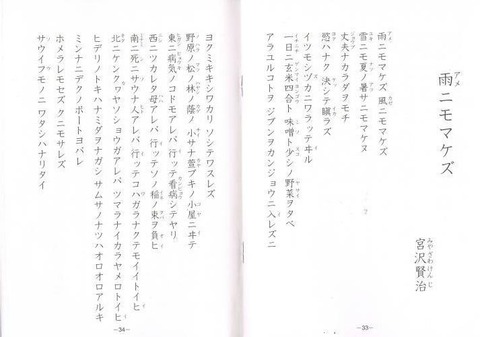 雨ニモマケズ
宮沢賢治
みやざわけんじ
雨ニモマケズ 風ニモマケズ
雪ニモ夏ノ暑サニモマケヌ
丈夫ナカラダヲモチ
慾ハナク 決シテ瞋ラズ
イツモシヅカニワラッテヰル
一日ニ玄米四合ト 味噌ト少シノ野菜ヲタベ
アラユルコトヲ ジブンヲカンジョウニ入レズニ
-33-
ヨクミキキシワカリ ソシテワスレズ
野原ノ松ノ林ノ蔭ノ 小サナ萱ブキノ小屋ニヰテ
東ニ病気ノコドモアレバ 行ッテ看病シテヤリ
西ニツカレタ母アレバ 行ッテソノ稲ノ束ヲ負ヒ
南ニ死ニサウナ人アレバ 行ッテコハガラナクテモイイトイヒ
北ニケンクヮヤソショウガアレバ ツマラナイカラヤメロトイヒ
ヒデリノトキハナミダヲナガシ サムサノナツハオロオロアルキ
ミンナニデクノボートヨバレ
ホメラレモセズ クニモサレズ
サウイフモノニ ワタシハナリタイ
-34-